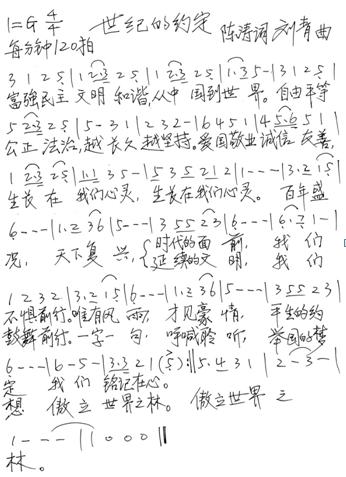 1=G 4/4 世纪的约定 陈涛词 刘青曲
每分钟120拍
3 1 2 5 | 1 2·3 2 5 | 1 2·3 2 5 | 1·3 5 - | 3 1 2 5 |
富强民主 文明 和谐,从中 国到世 界。自由平等
5 2·3 2 5 | 5 - 3 1 | 2 3 2 - | 6 4 5 1 | 4 5·6 5 1 |
公正 法治,越 长久 越坚持。爱国敬业诚信 友善,
1 2·3 2 5 | 1·1 3 5 - | 5 3 5 2 1 2 | 1 - - - | 3·2 1 5 |
生长 在 我们心灵, 生长在我们心灵。 百年盛
6 - - - | 1·2 3 6 | 5 - - - | 3 5 5 2 3 | 6 - - - | 6·1 2 1 - |
况, 天下复 兴, 时代的面 前, 我 们
延续的文 明, 我 们
1 2 3 2 | 3·2 1 5 | 6 - - - | 1·2 3 6 | 5 - - - | 3 5 5 2 3 |
不惧前行。唯有风 雨, 才见豪 情, 平生的约
鼓舞前行。一字一 句, 聆听, 举国的梦
6 - - - | 6 - 5 - | 3·3 2 1 (5) :|| 5·4 3 1 | 2 - 3 - |
定 我 们 铭记在心。
想 傲 立 世界之林。 傲立世界 之
1 - - - | 1 0 0 0 ||
林。